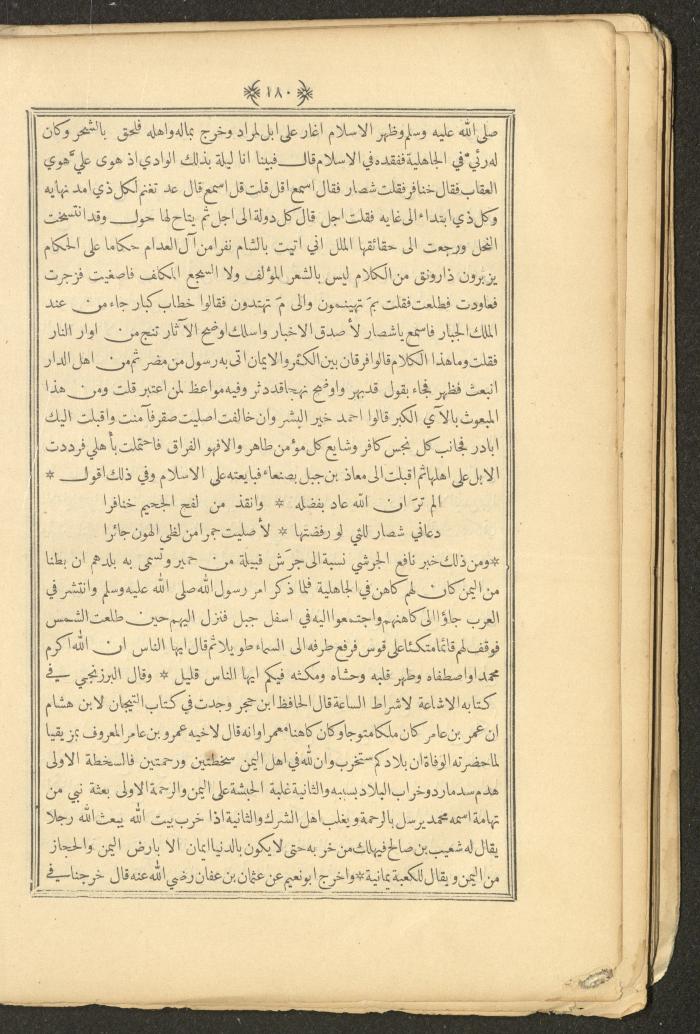 ١٨٠
صلى الله عليه وسلم وظهر الاسلام اغار على ابل لمراد وخرج بماله واهله فلحق بالشحر وكان
له رئي في الجاهلية ففقده في الاسلام قال فبينا انا ليلة بذلك الوادي اذ هوى عليّ هوي
العقاب فقال خنافر فقلت شصار فقال اسمع اقل قلت قل اسمع قال عد تغنم لكل ذي امد نهايه
وكل ذي ابتداء الى غايه فقلت اجل قال كل دولة الى اجل ثم يتاح لها حول وقد انتسخت
النحل ورجعت الى حقائقها الملل اني اتيت بالشام نفرا من آل العدام حكاما على الحكام
يزبرون ذا رونق من الكلام ليس بالشعر المؤلف ولا السجع المكلف فاصغيت فزجرت
فعاودت فطلعت فقلت بمَ تهينمون والى مَ تهتدون فقالوا خطاب كبار جاء من عند
الملك الجبار فاسمع يا شصار لأ صدق الاخبار واسلك اوضح الآثار تنج من اوار النار
فقلت وما هذا الكلام قالوا فرقان بين الكفر والايمان اتى به رسول من مضر ثم من اهل الدار
انبعث فظهر فجاء بقول قد بهر واوضح نهجا قد دثر وفيه مواعظ لمن اعتبر قلت ومن هذا
المبعوث بالآي الكبر قالوا احمد خير البشر وان خالفت اصليت صقر فآمنت واقبلت اليك
ابادر فجانب كل نجس كافر وشايع كل مؤمن طاهر والا فهو الفراق فاحتملت بأهلي فرددت
الابل على اهلها ثم اقبلت الى معاذ بن جبل بصنعاء فبايعته على الاسلام وفي ذلك اقول *
الم ترَ ان الله عاد بفضله * وانقذ من لفح الجحيم خنافرا
دعاني شصار للتي لو رفضتها * لأ صليت جمرا من لظى الهون جائرا
* ومن ذلك خبر نافع الجرشي نسبة الى جرَش قبيلة من حمير وتسمى به بلدهم ان بطنا
من اليمن كان لهم كاهن في الجاهلية فلما ذكر امر رسول الله صلى الله عليه وسلم وانتشر في
العرب جاؤا الى كاهنهم واجتمعوا اليه في اسفل جبل فنزل اليهم حين طلعت الشمس
فوقف لهم قائما متكئا على قوس فرفع طرفه الى السماء طويلا ثم قال ايها الناس ان الله اكرم
محمدا واصطفاه وطهر قلبه وحشاه ومكثه فيكم ايها الناس قليل * وقال البرزنجي في
كتابه الاشاعة لاشراط الساعة قال الحافظ ابن حجر وجدت في كتاب التيجان لابن هشام
ان عمر بن عامر كان ملكا متوجا وكان كاهنا معمرا وانه قال لاخيه عمرو بن عامر المعروف بمزيقيا
لما حضرته الوفاة ان بلادكم ستخرب وان لله في اهل اليمن سخطتين ورحمتين فالسخطة الاولى
هدم سد مارد وخراب البلاد بسببه والثانية غلبة الحبشة على اليمن والرحمة الاولى بعثة نبي من
تهامة اسمه محمد يرسل بالرحمة ويغلب اهل الشرك والثانية اذا خرب بيت الله يبعث الله رجلا
يقال له شعيب بن صالح فيهلك من خربه حتى لا يكون بالدنيا ايمان الا بارض اليمن والحجاز
من اليمن ويقال للكعبة يمانية * واخرج ابو نعيم عن عثمان بن عفان رضي الله عنه قال خرجنا في